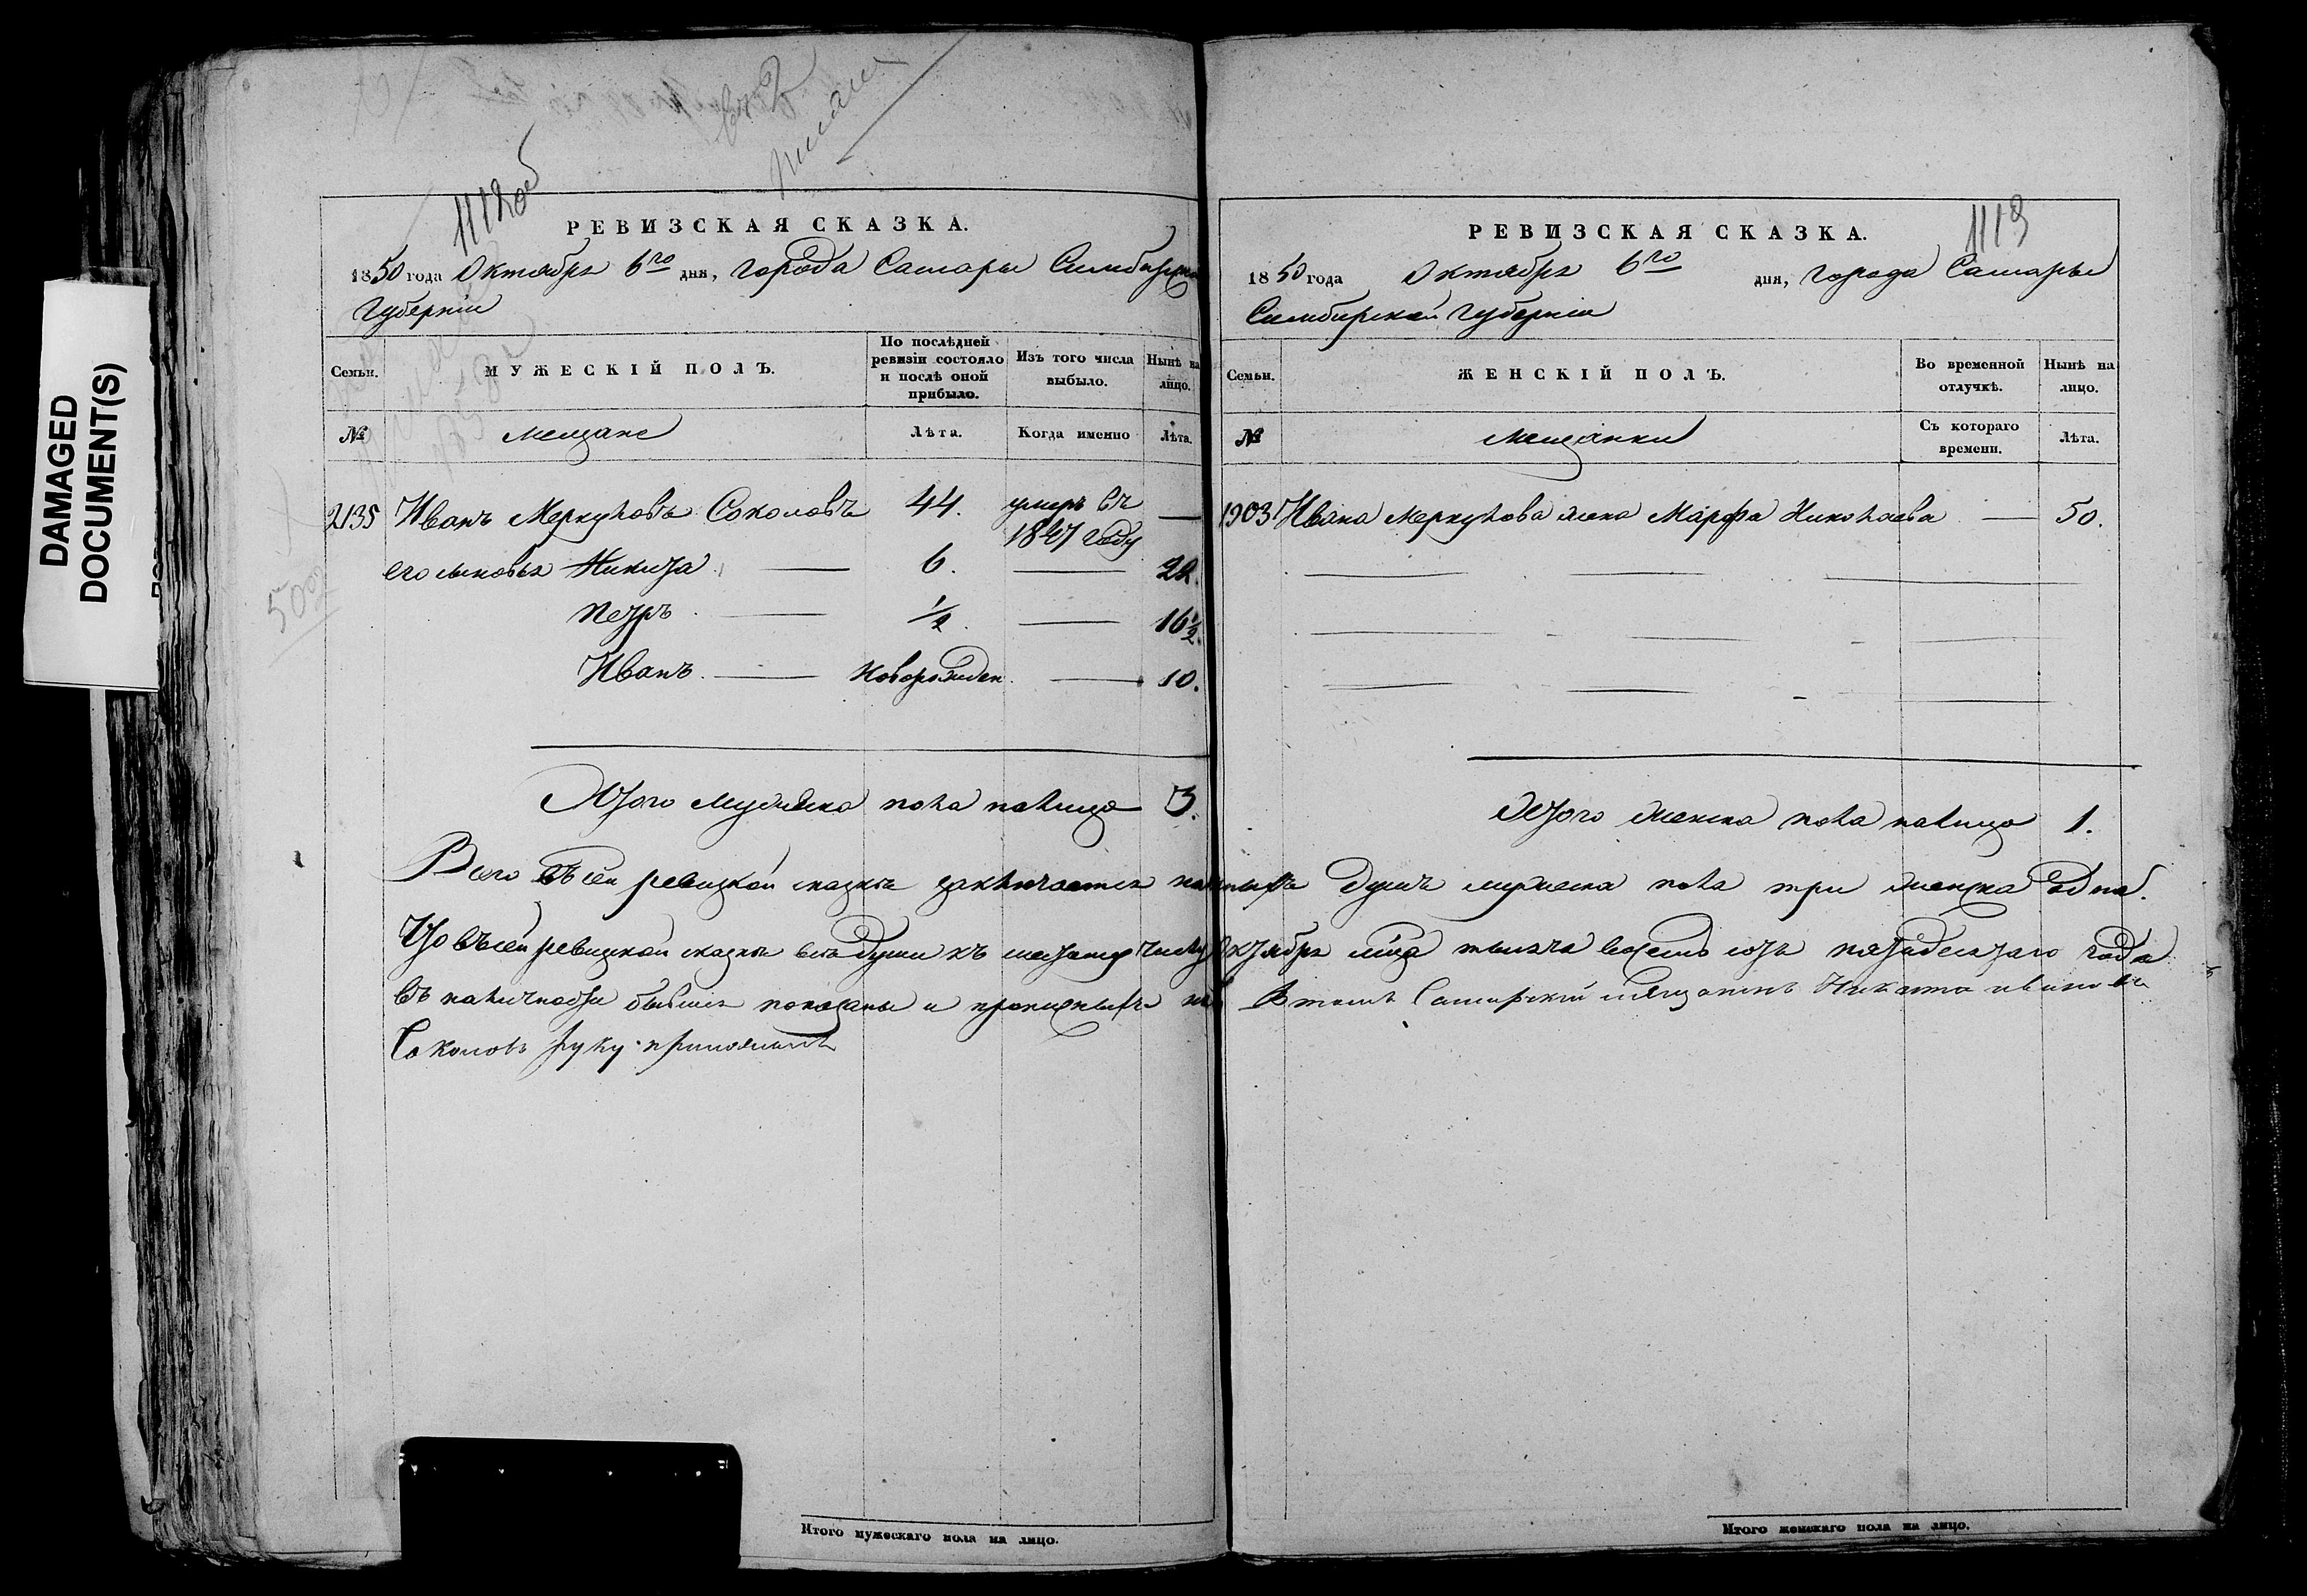 DAMAGED
DOCUMENT(S)
1112об
РЕВИЗСКАЯ СКАЗКА.
1850 года Октября 6го дня, города Самары Симбирской
Губернiи
Семьи.
МУЖЕСКIЙ ПОЛЪ.
По послѣдней ревизiи состояло и послѣ оной прибыло.
Изъ того числа выбыло.
Нынѣ на лицо.
№
Мещане
Лѣта.
Когда именно
Лѣта.
2135 Иванъ Меркуловъ Соколовъ 44. умеръ въ 1847 году —
его сыновья Никита — 6. — 22.
Петръ — 1/2. — 16 1/2.
Иванъ — новорожден. — 10.
Итого мужеска пола налицо 3.
1113
РЕВИЗСКАЯ СКАЗКА.
1850 года Октября 6го дня, города Самары
Симбирской Губернiи
Семьи.
ЖЕНСКIЙ ПОЛЪ.
Во временной отлучкѣ.
Нынѣ на лицо.
№
Мещанки
Съ котораго времени.
Лѣта.
1903 Ивана Меркулова жена Марфа Николаева — 50.
Итого женска пола налицо 1.
Всего въ сей ревизкой сказкѣ заключается наличныхъ душъ мужеска пола три женска одна.
Что въ сей ревизкой сказкѣ всѣ души къ шестому числу Октября мца тысяча восемь сотъ пятидесятаго года
въ наличности бывшiя показаны и прописныхъ нѣтъ В томъ Самарскiй мещанинъ Никита Ивановъ
Соколовъ руку приложилъ
5002
Итого мужескаго пола на лицо.
Итого женскаго пола на лицо.